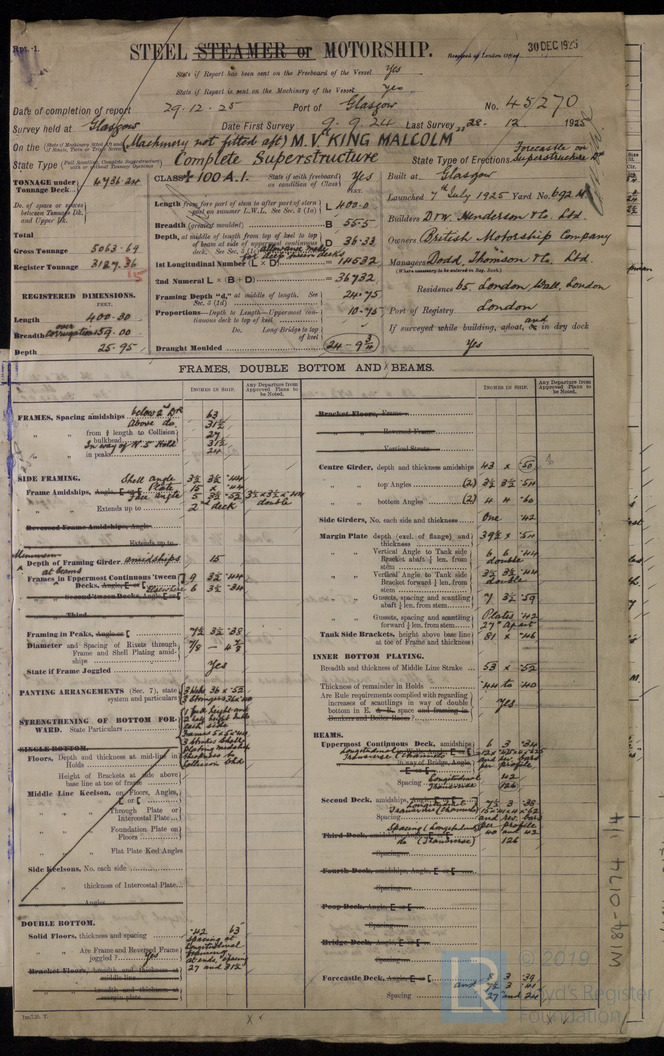 Rpt. 1.
STEEL STEAMER or MOTORSHIP.
Received at London Office
30 DEC 1925
State if Report has been sent on the Freeboard of the Vessel Yes
State if Report is sent on the Machinery of the Vessel Yes
Date of completion of report 29.12.25 Port of Glasgow No. 45270
Survey held at Glasgow Date First Survey 9.9.24 Last Survey 28. 12 1925
On the (Machinery not fitted aft) M.V. "KING MALCOLM
State Type Complete Superstructure State Type of Erections Forecastle on Superstructure Dk
TONNAGE under Tonnage Deck 4736.24
Do. of space or spaces between Tonnage Dk. and Upper Dk.
Total
Gross Tonnage 5063.69
Register Tonnage 3127.36
REGISTERED DIMENSIONS.
FEET.
Length 400.30
Breadth over corrugations 59.00
Depth 25.95
CLASS 100 A.1. State if with freeboard as condition of Class Yes
Length from fore part of stem to after part of stern post on summer L.W.L. See Sec. 3 (1a) L 400.0
Breadth (greatest moulded) B 55.5
Depth, at middle of length from top of keel to top of beam at side of uppermost continuous deck. See Sec. 3 (1c) D 36.33
1st Longitudinal Number (L × D) = 14532
2nd Numeral L × (B + D) = 36732
Framing Depth "d," at middle of length. See Sec. 3 (1d) = 24.75
Proportions—Depth to Length—Uppermost continuous deck to top of keel 10.75
Do. Long Bridge to top of keel
Draught Moulded 24 - 9 3/4
Built at Glasgow
Launched 7th July 1925 Yard No. 692 M
Builders D & W. Henderson & Co. Ltd.
Owners British Motorship Company
Managers Dodd Thomson & Co. Ltd
(Where necessary to be entered in Reg. Book.)
Residence 65, London Wall, London
Port of Registry London
If surveyed while building, afloat, or in dry dock and
Yes
FRAMES, DOUBLE BOTTOM AND BEAMS.
INCHES IN SHIP.
Any Departure from Approved Plans to be Noted.
INCHES IN SHIP.
Any Departure from Approved Plans to be Noted.
FRAMES, Spacing amidships below 2nd Dk 63
Above do. 31½
" " from ⅕ length to Collision bulkhead 27
In way of No. 5 Hold 31½
" " in peaks 24
SIDE FRAMING. Shell angle 3½ 3½ .44
Frame Amidships, Angle, E or [ Plate 15 × .44
Face Angle 5 3½ .52 3½ × 3½ × .44 double
" " Extends up to 2nd deck
Reversed Frame Amidships, Angle
" " Extends up to
Minimum Depth of Framing Girder amidships 15
at beams
Frames in Uppermost Continuous 'tween Decks, Angle, E or [ 9 3½ .44
Elsewhere 6 3½ .34
" Second 'tween Decks, Angle, E or [
" Third
Framing in Peaks, Angle or [ 7½ 3½ .38
Diameter and Spacing of Rivets through Frame and Shell Plating amidships 7/8 -
State if Frame Joggled Yes
PANTING ARRANGEMENTS (Sec. 7), state system and particulars
STRENGTHENING OF BOTTOM FORWARD. State Particulars
SINGLE BOTTOM.
Floors, Depth and thickness at mid-line in Holds
" Height of Brackets at side above base line at toe of frame
Middle Line Keelson, on Floors, Angles, E or [
" " Through Plate or Intercostal Plate
" " Foundation Plate on Floors
" " Flat Plate Keel Angles
Side Keelsons, No. each side
" thickness of Intercostal Plate
" Angles
DOUBLE BOTTOM.
Solid Floors, thickness and spacing .42 63
" Are Frame and Reversed Frame joggled? Yes
Spacing at Longitudinal framing at ends, spacing 27 and 31½
Bracket Floors, breadth and thickness at middle line
" breadth and thickness at margin plate
Bracket Floors, Frame
" Reversed Frame
" Vertical Struts
Centre Girder, depth and thickness amidships 43 × .50
" top Angles (2) 3½ 3½ .54
" bottom Angles (2) 4 4 .60
Side Girders, No. each side and thickness One .42
Margin Plate depth (excl. of flange) and thickness 39½ × .54
" Vertical Angle to Tank side Bracket abaft ¼ len. from stem 6 6 .44 double
" Vertical Angle to Tank side Bracket forward ¼ len. from stem 3½ 3½ .44 double
" Gussets, spacing and scantling abaft ¼ len. from stem
" Gussets, spacing and scantling forward ¼ len. from stem Plates .42 27" apart
Tank Side Brackets, height above base line at toe of Frame and thickness 81 × .46
INNER BOTTOM PLATING.
Breadth and thickness of Middle Line Strake 53 × .52
Thickness of remainder in Holds .44 to .40
Are Rule requirements complied with regarding increases of scantlings in way of double bottom in E. & B. space and framing in Bunkers and Boiler Room? Yes
BEAMS.
Uppermost Continuous Deck, amidships 6 3 .34
Longitudinal
Transverse (Channels)
" " in way of Bridge, Angle, E or [
and rev. bars per profile
Spacing Longitudinal 42
Transverse 126
Second Deck, amidships, Angle, E or [ 7½ 3 .38
Transverse (Channels)
and rev. bars per profile
Spacing
Spacing (Longitudinal) 40 and 42
Third Deck, amidships, Angle, E or [
do (Transverse) 126
Spacing
Fourth Deck, amidships, Angle, E or [
Spacing
Poop Deck, Angle, E or [
Spacing
Bridge Deck, Angle, E or [
Spacing
Forecastle Deck, Angle, E or [ 8 3 .39
and 7½ 3 .41
Spacing 27 and 24
W184-0174 1/4
© 2019
Lloyd's Register
Foundation
LR